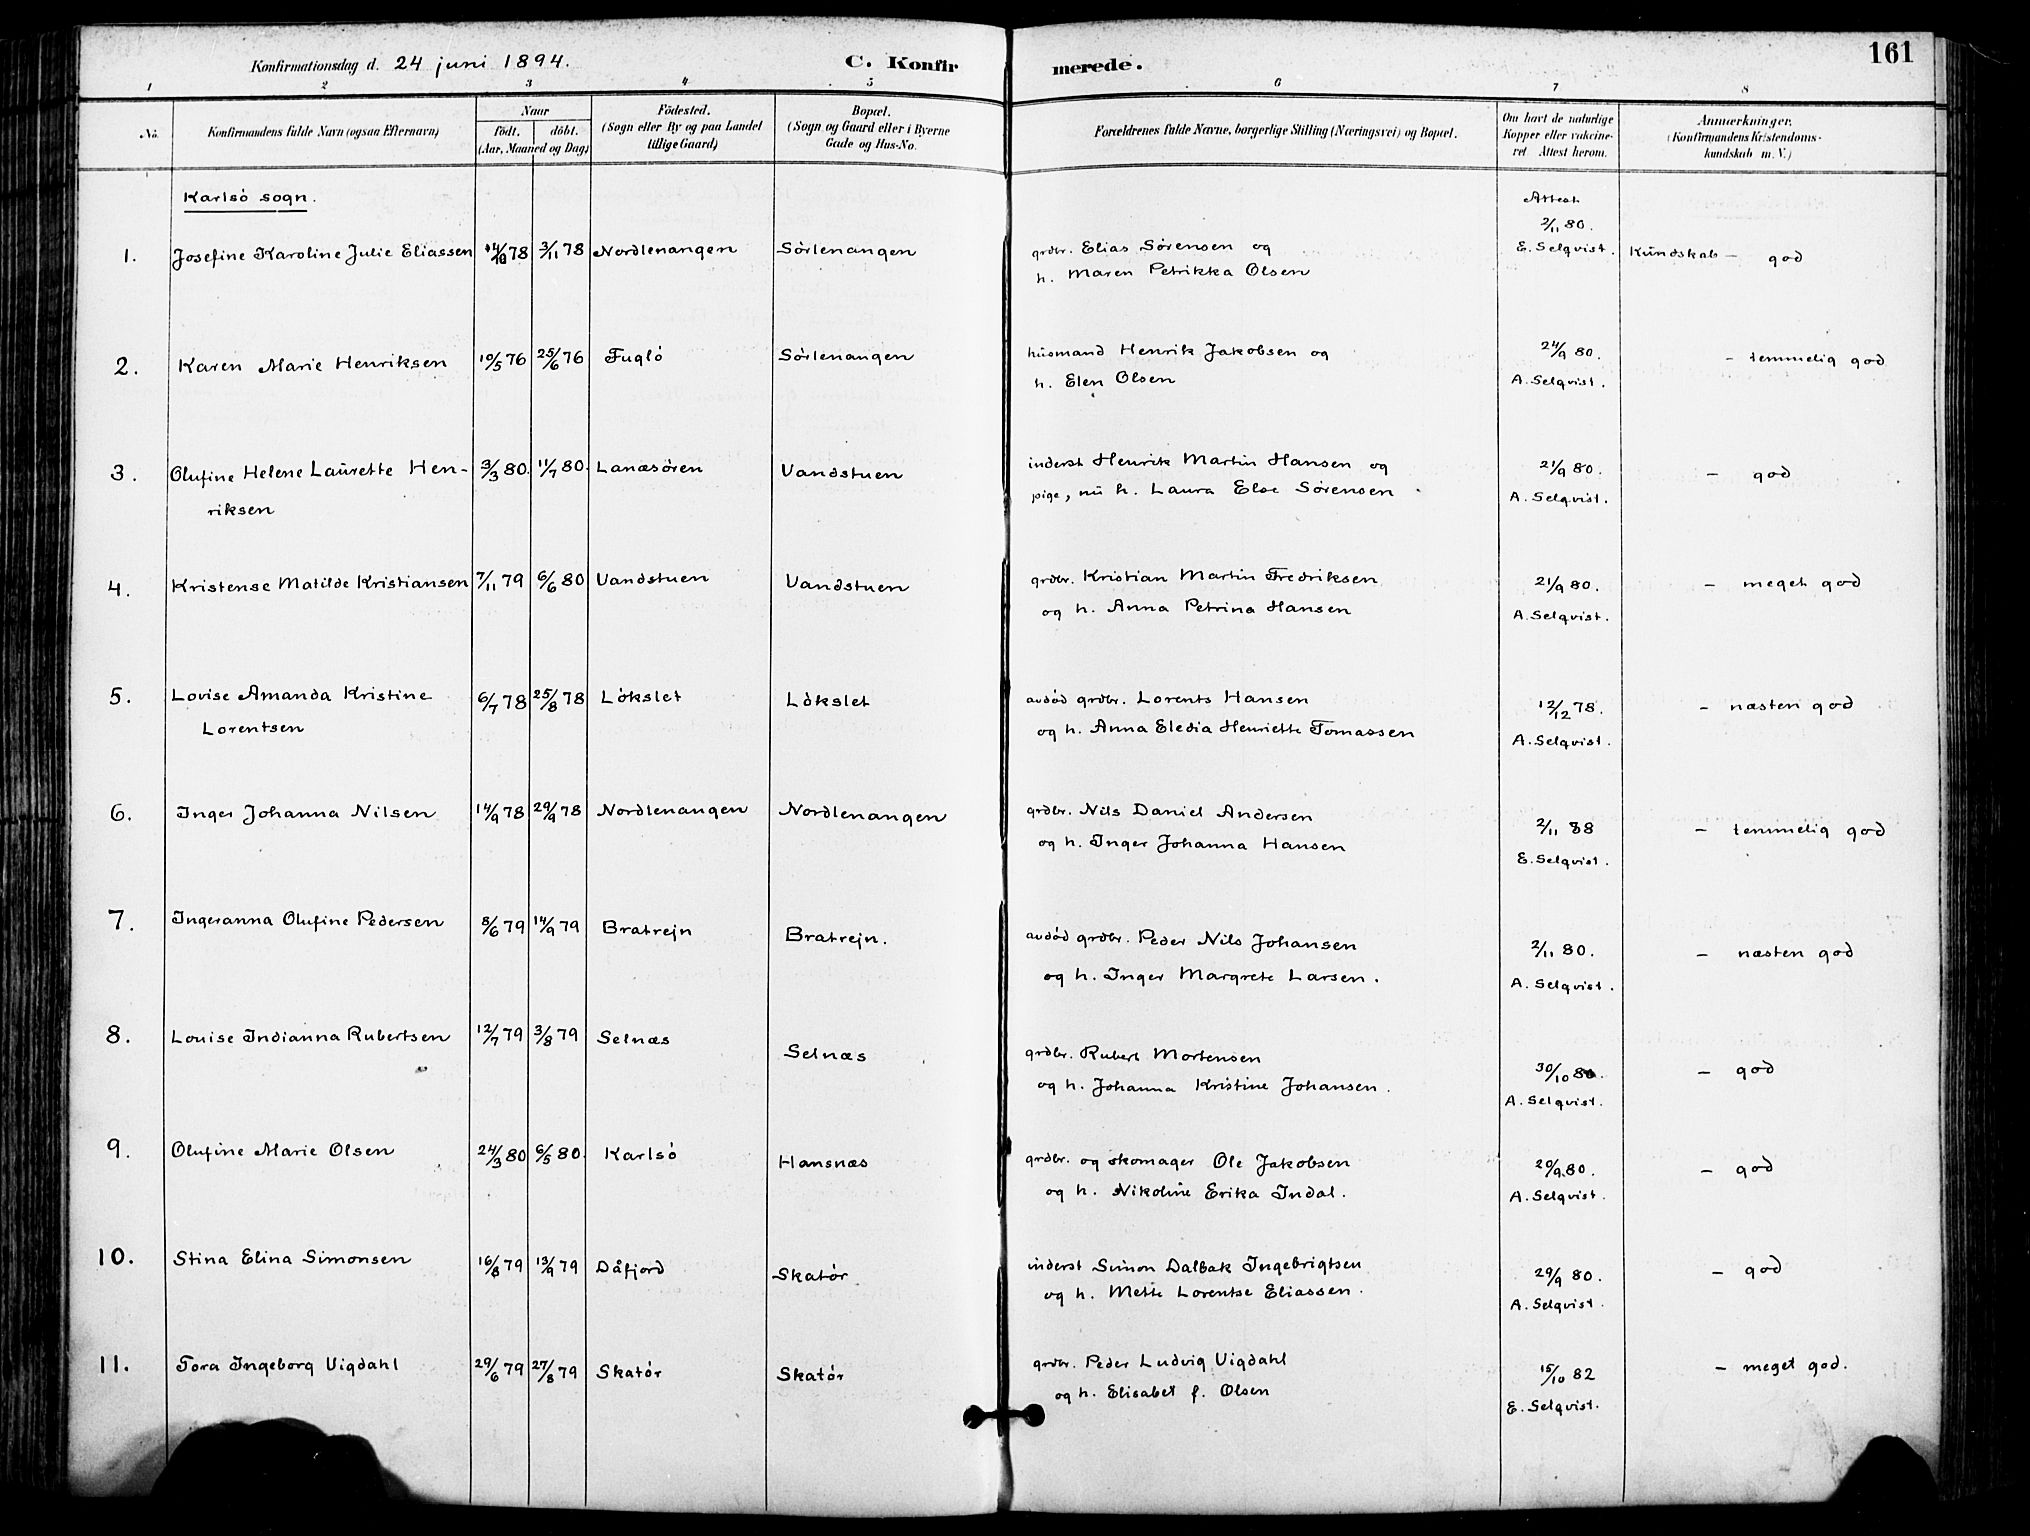 Konfirmationsdag d. 24 juni 1894. C. Konfirmerede. 161
1 2 3 4 5 6 7 8
No. Konfirmandens fulde Navn (ogsaa Efternavn) Naar født. døbt. (Aar, Maaned og Dag) Födested. (Sogn eller By og paa Landet tillige Gaard) Bopæl. (Sogn og Gaard eller i Byerne Gade og Hus-No. Forældrenes fulde Navne, borgerlige Stilling (Næringsvei) og Bopæl. Om havt de naturlige Kopper eller vakcineret Attest herom. Anmærkninger. (Konfirmandens Kristendomskundskab m. V.)
Karlsö sogn. Attest
1. Josefine Karoline Julie Eliassen 3/11 78 Nordlenangen Sörlenangen grdbr. Elias Sörensen og 2/11 80.
h. Maren Petrikka Olsen E. Selqvist. Kundskab – god
2. Karen Marie Henriksen 10/5 76 25/6 76 Fuglö Sörlenangen husmand Henrik Jakobsen og 24/9 80. – temmelig god
h. Elen Olsen A. Selqvist.
3. Olufine Helene Laurette Hen- 3/3 80. 11/7 80. Lanæsören Vandstuen inderst Henrik Martin Hansen og 21/9 80. – god
riksen pige, nu h. Laura Else Sörensen A. Selqvist.
4. Kristense Matilde Kristiansen 7/11 79 6/6 80 Vandstuen Vandstuen grdbr. Kristian Martin Fredriksen 21/9 80. – meget god
og h. Anna Petrina Hansen A. Selqvist.
5. Lovise Amanda Kristine 6/7 78 25/8 78 Lökslet Lökslet avdöd grdbr. Lorents Hansen 12/12 78. – næsten god
Lorentsen og h. Anna Eledia Henriette Tomassen A. Selqvist.
6. Inger Johanna Nilsen 14/9 78 29/9 78 Nordlenangen Nordlenangen grdbr. Nils Daniel Andersen 2/11 – temmelig god
og h. Inger Johanna Hansen E. Selqvist.
7. Ingeranna Olufine Pedersen 8/6 79 14/9 79 Bratrejn Bratrejn. avdöd grdbr. Peder Nils Johansen 2/11 80. – næsten god
og h. Inger Margrete Larsen. A. Selqvist.
8. Louise Indianna Rubertsen 12/7 79 3/8 79 Selnæs Selnæs grdbr. Rubert Mortensen 30/10 80. – god
og h. Johanna Kristine Johansen. A. Selqvist.
9. Olufine Marie Olsen 24/3 80 6/5 80. Karlsö Hansnæs grdbr. og skomager Ole Jakobsen 20/9 80. – god
og h. Nikoline Erika Indal. A. Selqvist.
10. Stina Elina Simonsen 16/8 79 13/9 79 Dåfjord Skatör inderst Simon Dalbak Ingebrigtsen 29/9 80. – god
og h. Mette Lorentse Eliassen. A. Selqvist.
11. Tora Ingeborg Vigdahl 29/6 79 27/8 79 Skatör Skatör grdbr. Peder Ludvig Vigdahl 15/10 82 – meget god.
og h. Elisabet f. Olsen E. Selqvist.